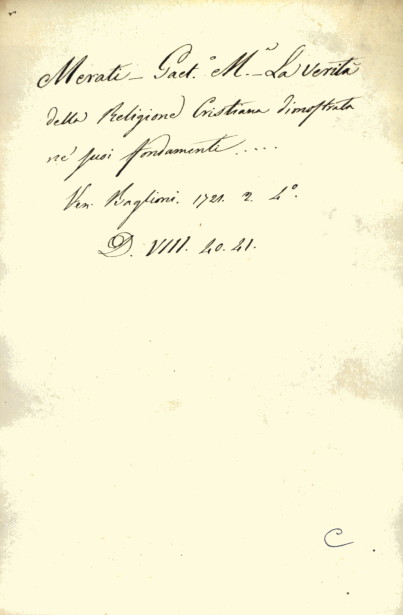 Merati - Gaet.º M.ª - La verità
della Religione Cristiana dimostrata
ne' suoi fondamenti ....
Ven. Baglioni. 1721. 2. 4º.
D. VIII. 40. 41.
C